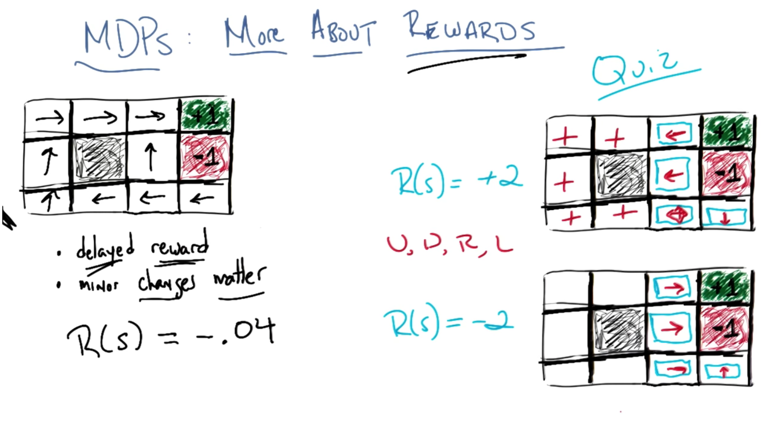 MDPs: More About Rewards
Quiz
+1
-1
• delayed reward
• minor changes matter
R(s) = -.04
R(s) = +2
U, D, R, L
+ + +1
+ -1
+ +
R(s) = -2
+1
-1